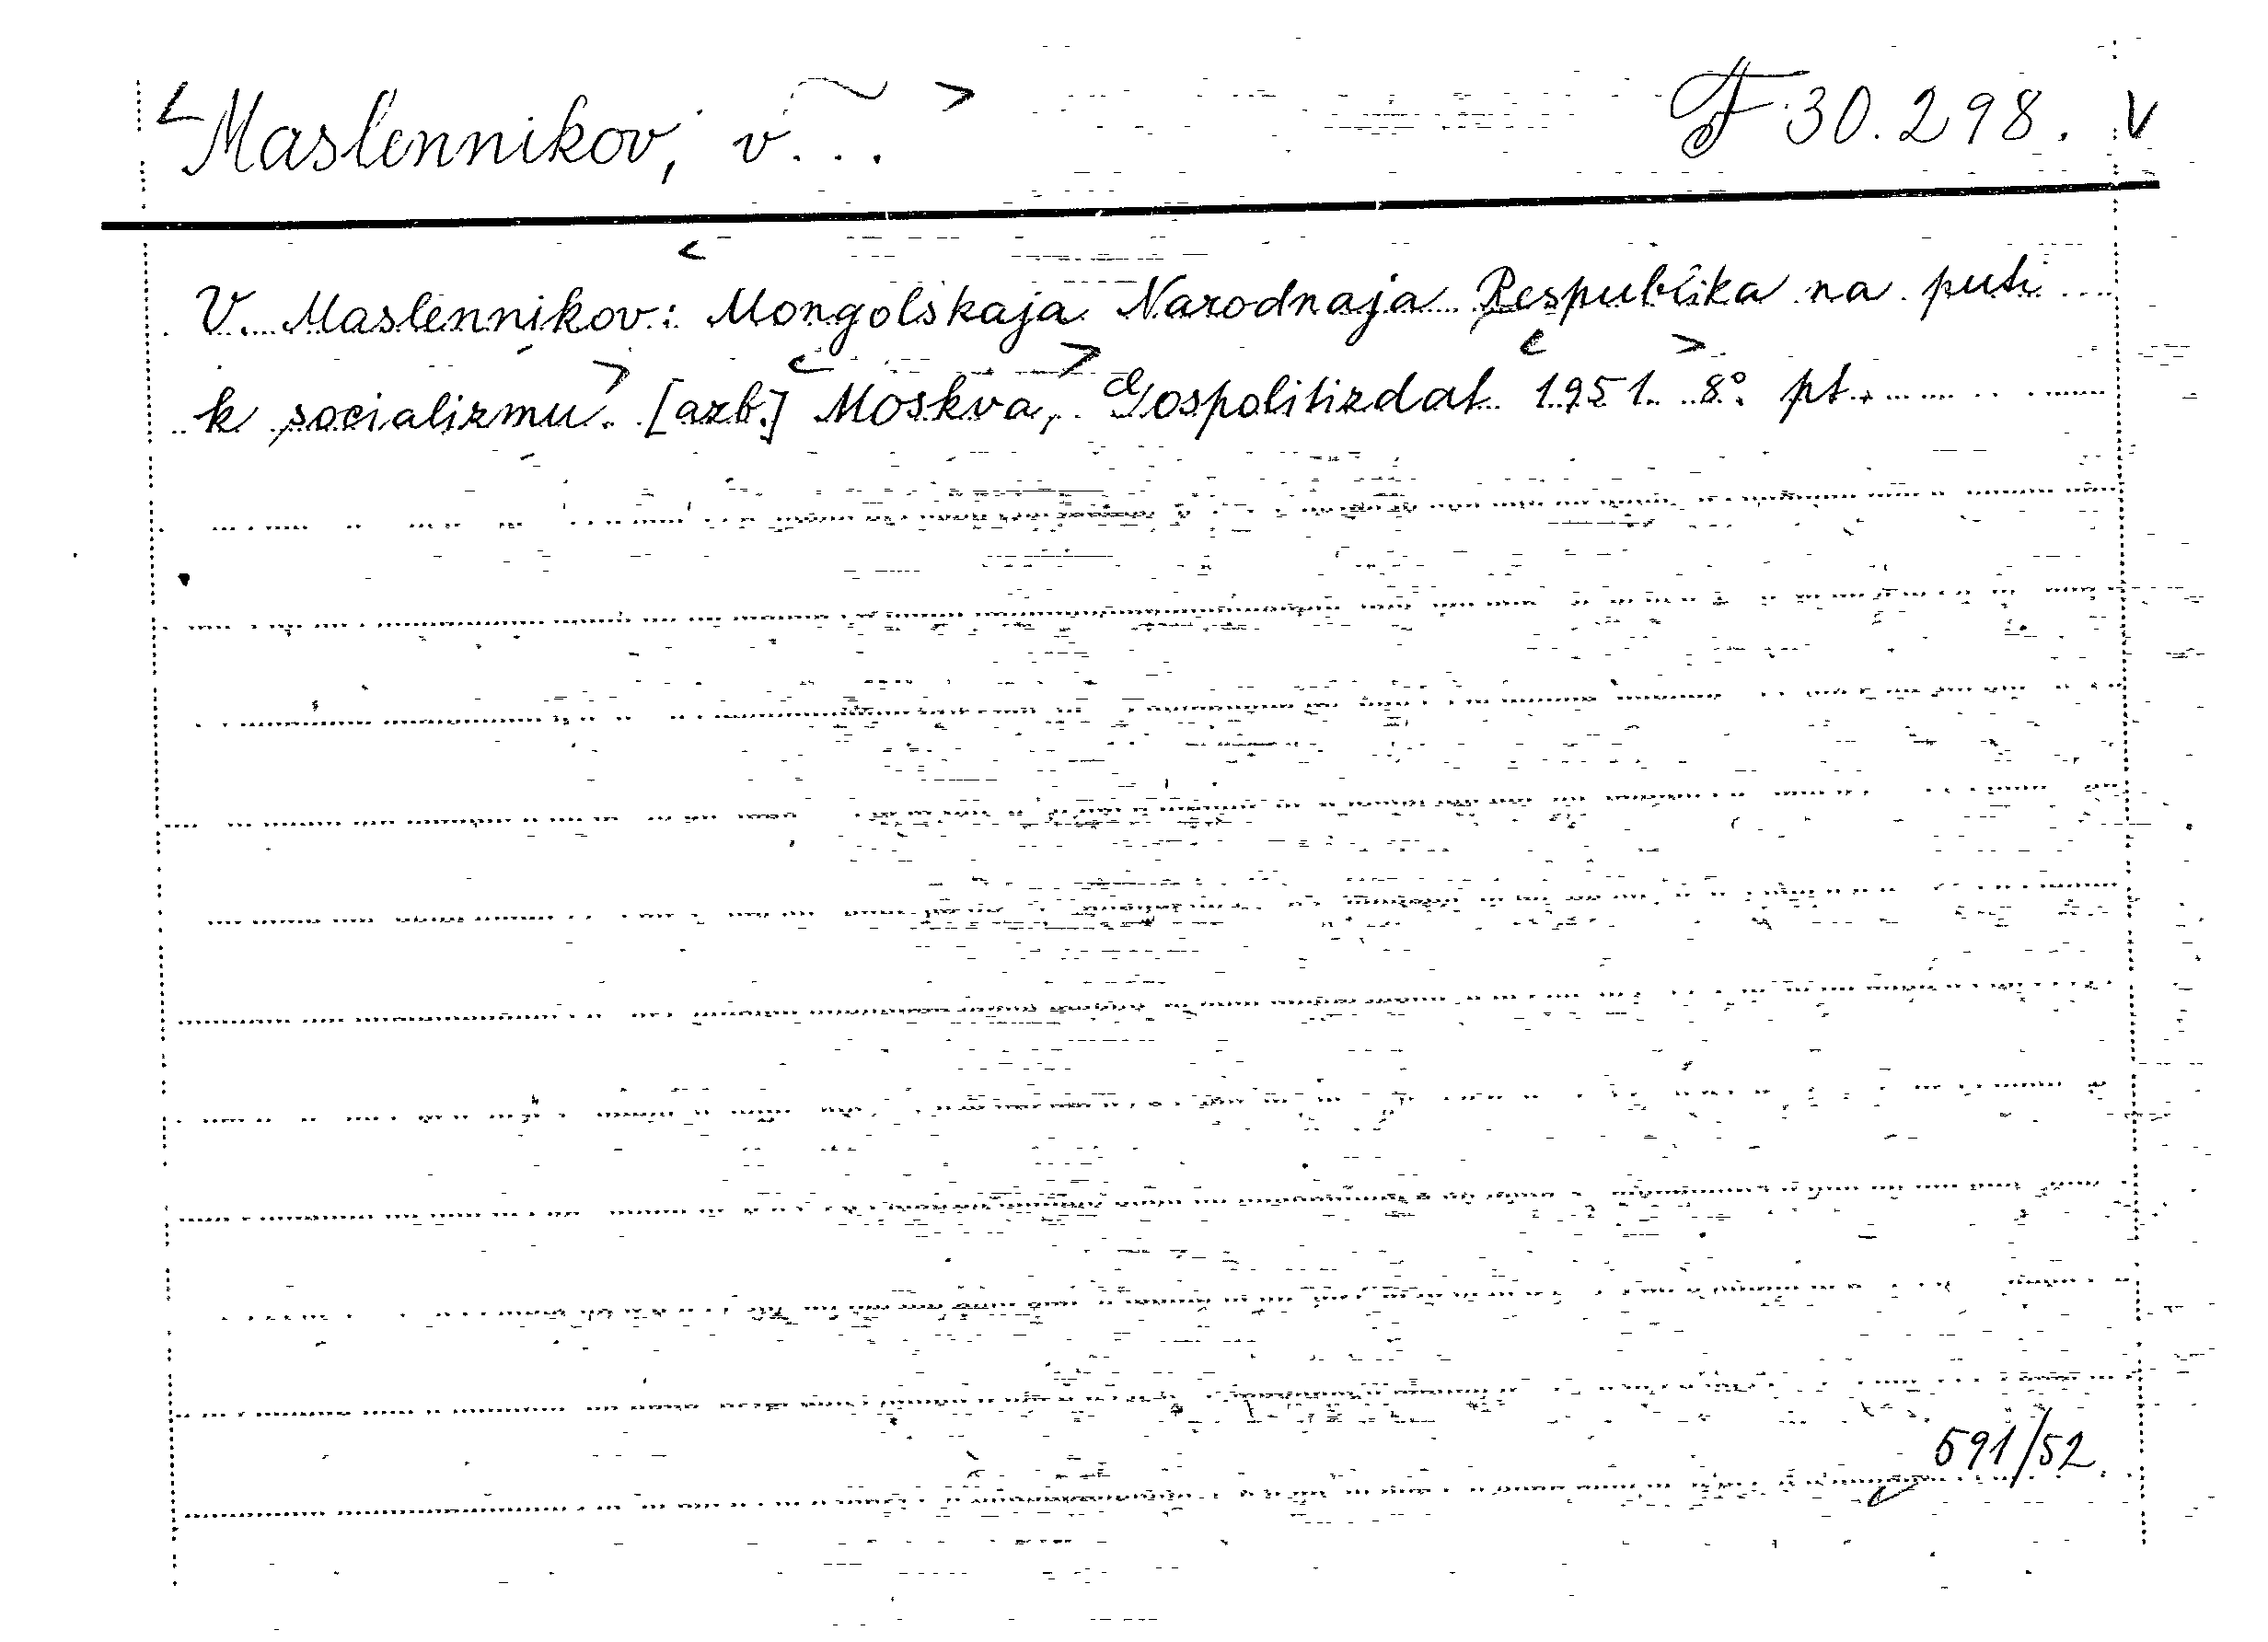 Maslennikov, v... F 30.298. V
V. Maslennikov: Mongolskaja Narodnaja Respublika na puti
k socializmu. [azb.] Moskva, Gospolitizdat 1951. 8°. pt.
591/52